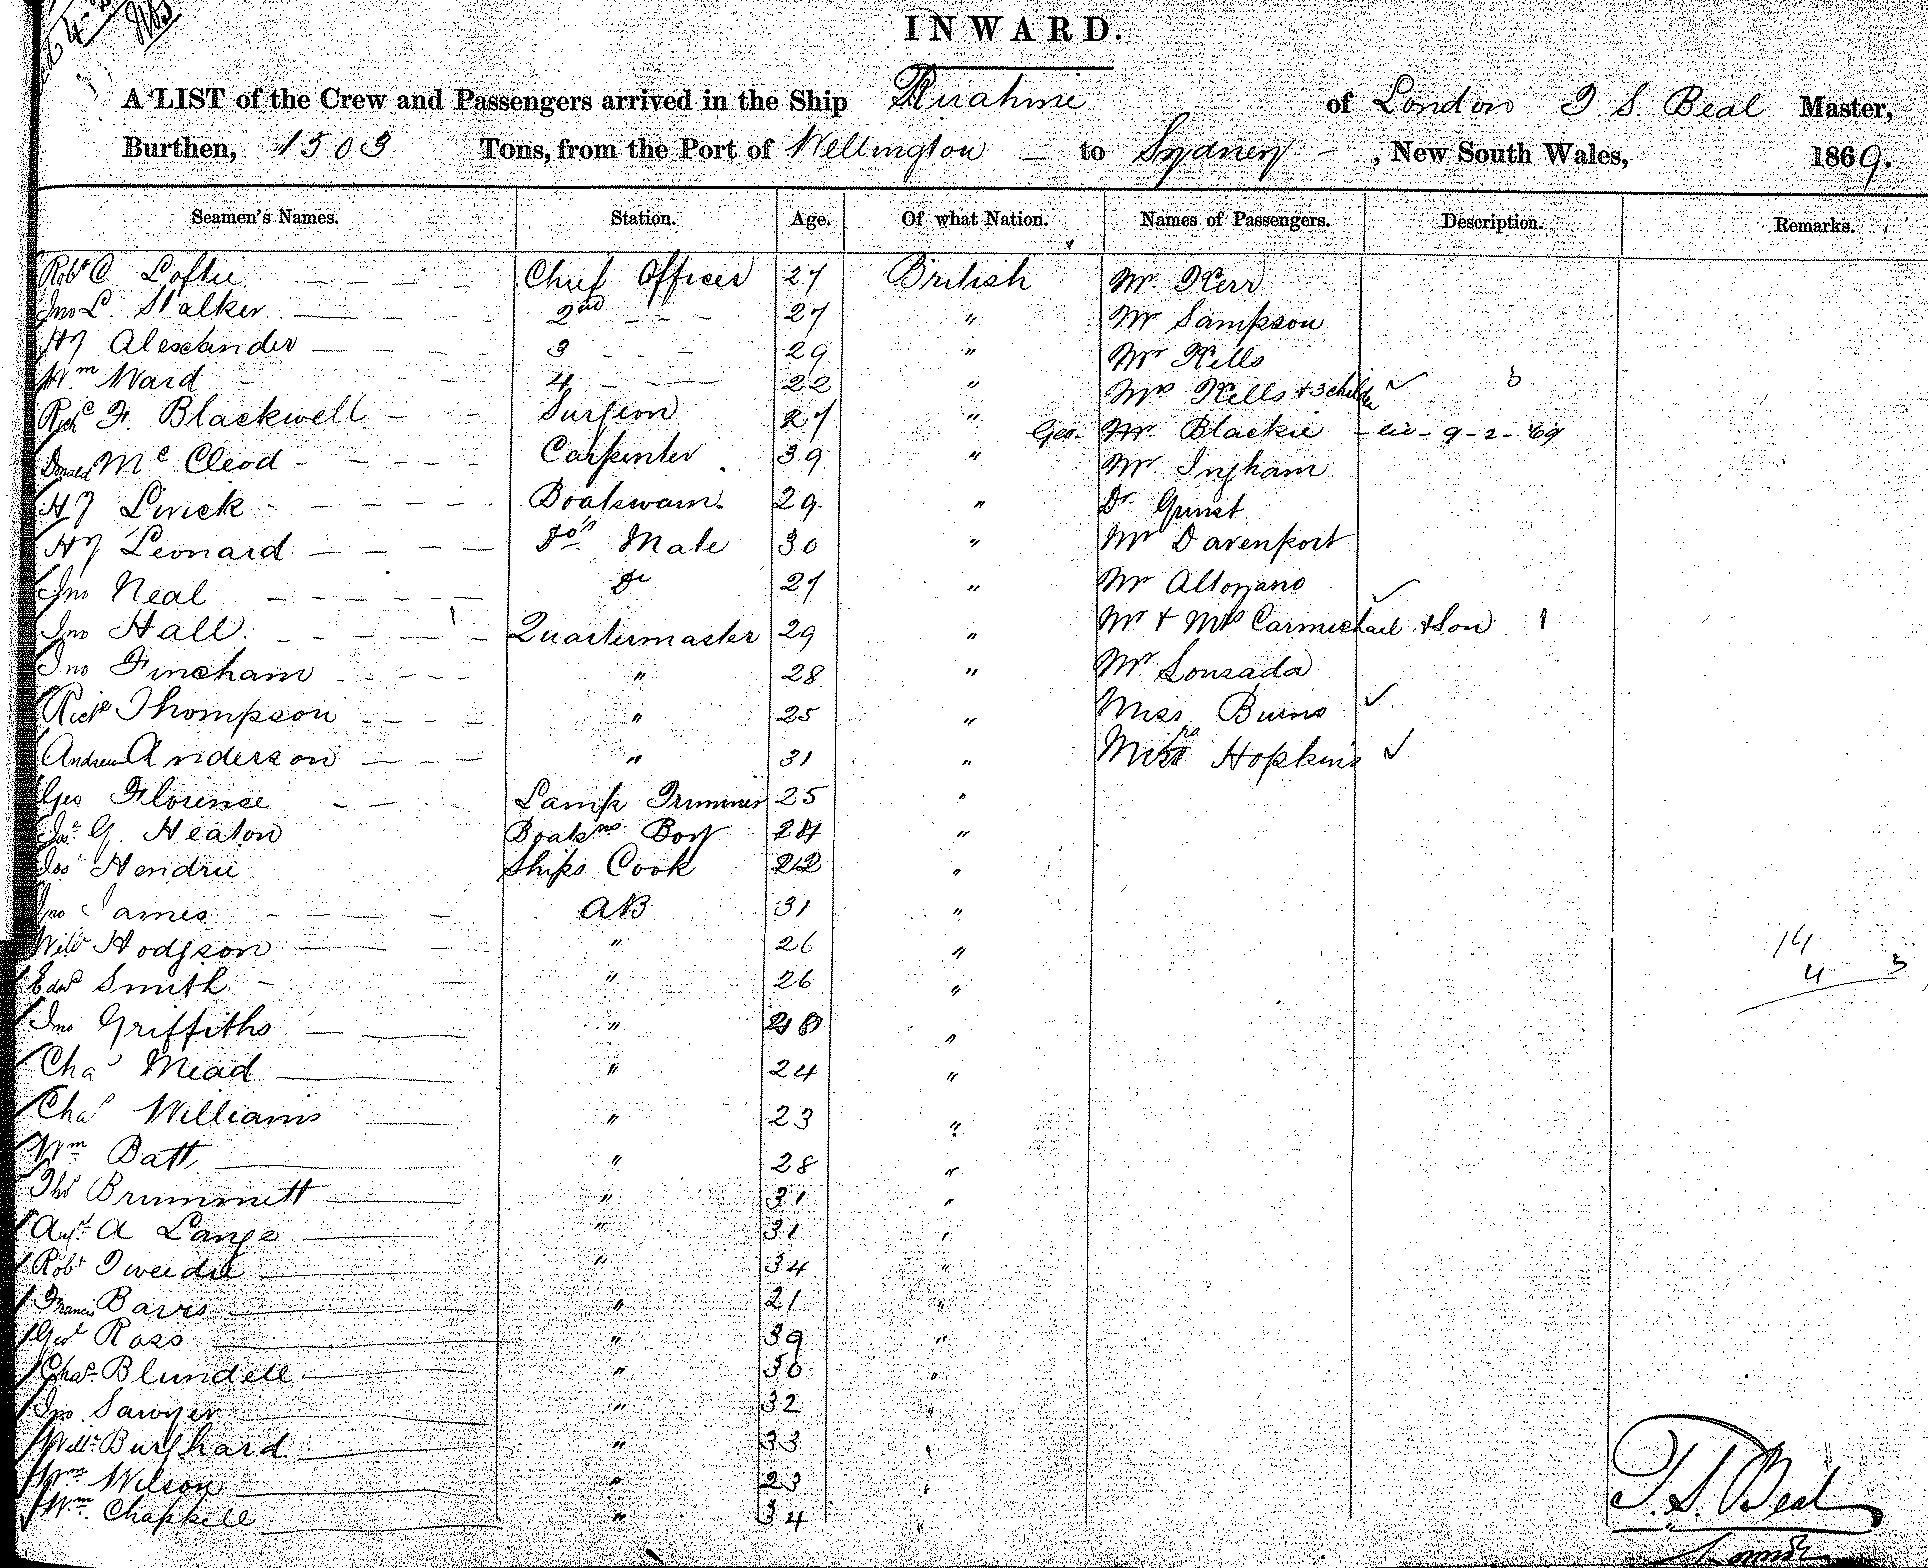 INWARD.
A LIST of the Crew and Passengers arrived in the Ship Ruahine of London T S. Beal Master,
Burthen, 1503 Tons, from the Port of Wellington to Sydney, New South Wales, 1869.
Seamen's Names. Station. Age. Of what Nation. Names of Passengers. Description. Remarks.
Robt C Loftie Chief Officer 27 British Mr Kerr
Jno L. Stalker 2nd 27 " Mr Sampson
Hy Alexander 3 29 " Mr Kells
Wm Ward 4 22 " Mrs Kells + 3 childn ✓ 3
Richd F. Blackwell Surgeon 27 " Geo. Mr Blackie - 9-2-69
Donald McCleod Carpenter 39 " Mr Ingham
Hy Livick Boatswain 29 " Dr Grunst
Hy Leonard Do's Mate 30 " Mr Davenport
Jno Neal Do 27 " Mr Altoyano
Jno Hall Quartermaster 29 " Mr + Mrs Carmichael + Son ✓ 1
Jno Fincham " 28 " Mr Lousada
Richd Thompson " 25 " Miss Burns ✓
Andrew Anderson " 31 " Hopkins ✓
Geo Florence Lamp Trimmer 25 "
Jas G Heaton Boatsns Boy "
Jas Hendrie Ships Cook 22 "
Jno James AB 31 "
Willm Hodgson " 26 "
Edwd Smith " 26 " 14
4 3
Jno Griffiths " "
Chas Mead " 24 "
Chas Williams " 23 "
Wm Batt " 28 "
Thos Brummett " 31 "
Augt A Lange " 31 "
Robt Tweedie " 34 "
Francis Barrs " 21 "
Geo Ross " 39 "
Chas Blundell " 36 "
Jno Sawyer " 32 "
Willm Burghard " 33 "
Wm Wilson " 23 "
Wm Chappell " 34 "
T. S. Beal